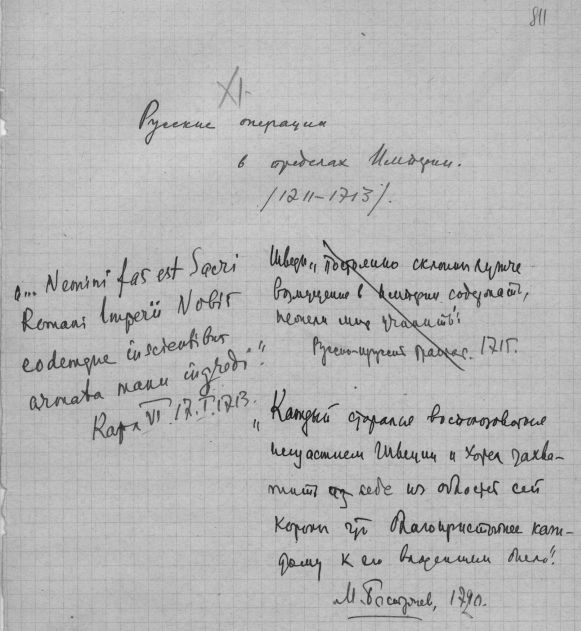 811
XI.
Русские операции
в пределах Империи.
/1711–1713/.
„... Nemini fas est Sacri
Romani Imperii Nobis
eodemque inscientibus
armata manu ingredi".
Карл VI. 17.I.1713.
Шведы „постоянно склонны лутче
возмущение в Империи содержать,
нежели мир учинить".
Русско-прусский 1715.
„Каждый старался воспользоваться
несчастием Швеции и хотел захва-
тить себе из областей сей
короны что благопристойнее каж-
дому к его владениям было".
М. Бестужев, 1720.